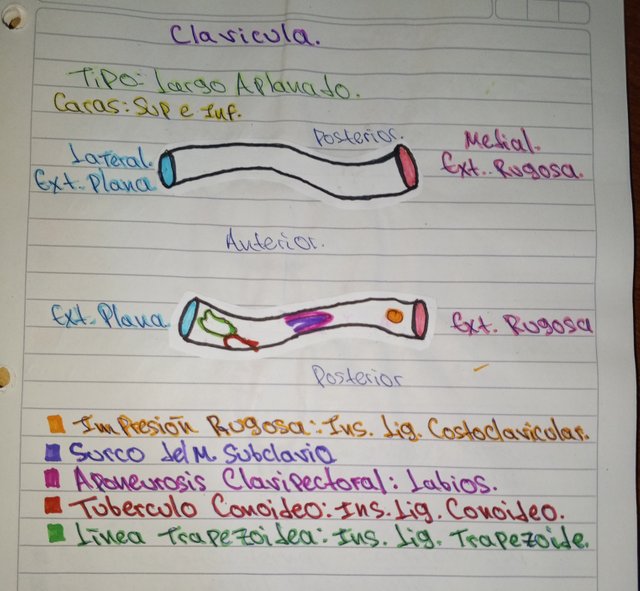 Clavicula.
Tipo: Largo Aplanado.
Caras: Sup e Inf.
Posterior.
Lateral.
Ext. Plana
Medial.
Ext. Rugosa.
Anterior.
Ext. Plana
Ext. Rugosa
Posterior
Impresión Rugosa: Ins. Lig. Costoclavicular.
Surco del M. Subclavio
Aponeurosis Clavipectoral: Labios.
Tuberculo Conoideo: Ins. Lig. Conoideo.
Línea Trapezoidea: Ins. Lig. Trapezoide.